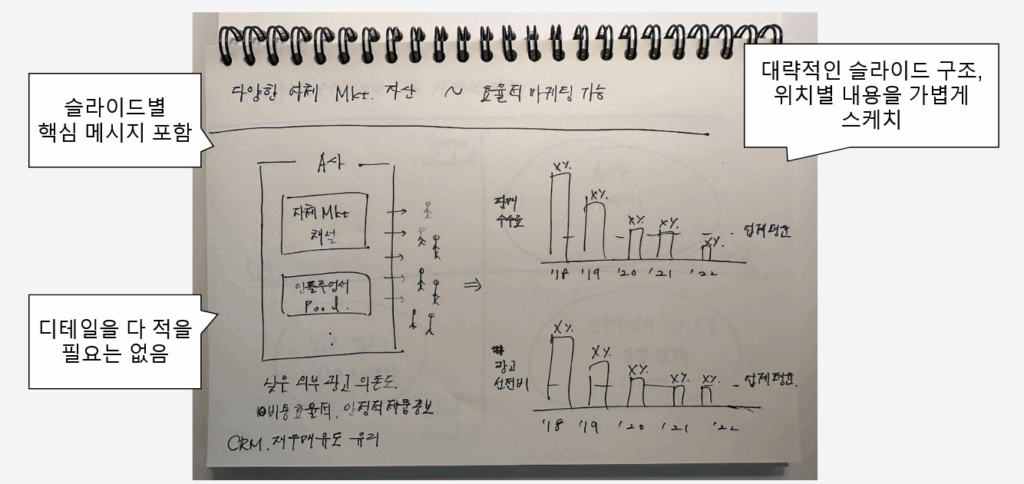 슬라이드별
핵심 메시지 포함
대략적인 슬라이드 구조,
위치별 내용을 가볍게
스케치
디테일을 다 적을
필요는 없음
다양한 자체 Mkt. 자산 ~ 효율적 마케팅 가능
A사
자체 Mkt
채널
인플루언서
Pool.
낮은 외부 광고 의존도.
비용효율적, 안정적
CRM. 재구매유도 유리
판매
수수료
X%. X%. X%. X%. X%.
업계평균
'18 '19 '20 '21 '22
광고
선전비
X%. X%. X%. X%. X%.
업계평균
'18 '19 '20 '21 '22